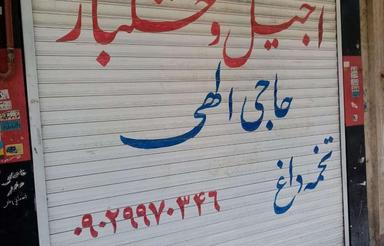 آجیل و خشکبار
حاجی الهی
تخمه داغ
۰۹۰۲۹۹۷۰۳۴۶